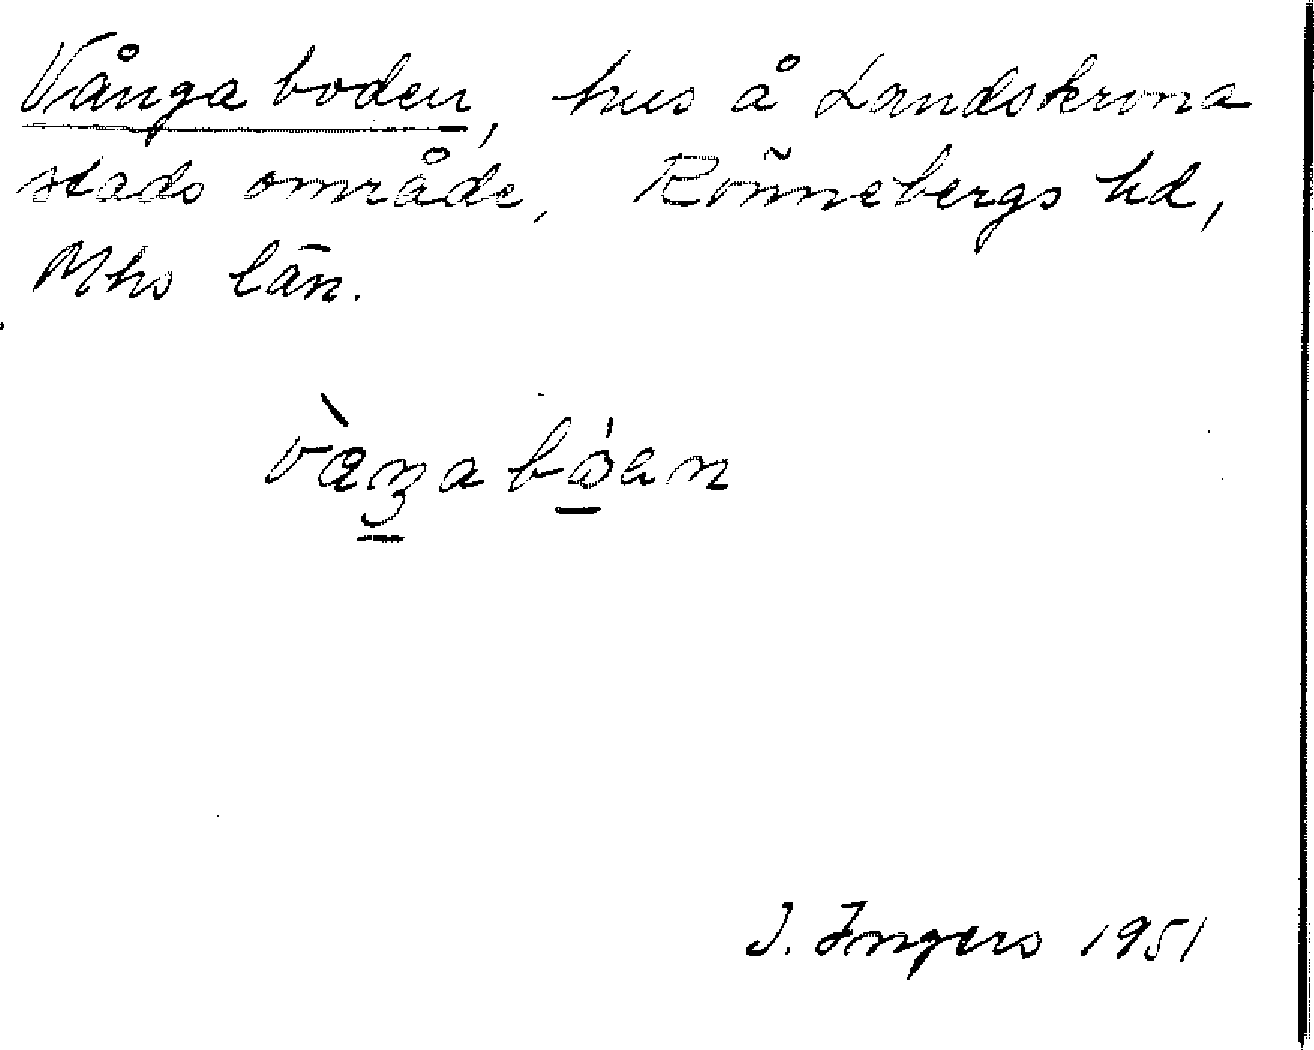 Vångaboden, hus å Landskrona
stads område, Rönnebergs hd,
Mhs län.
I. Ingers 1951